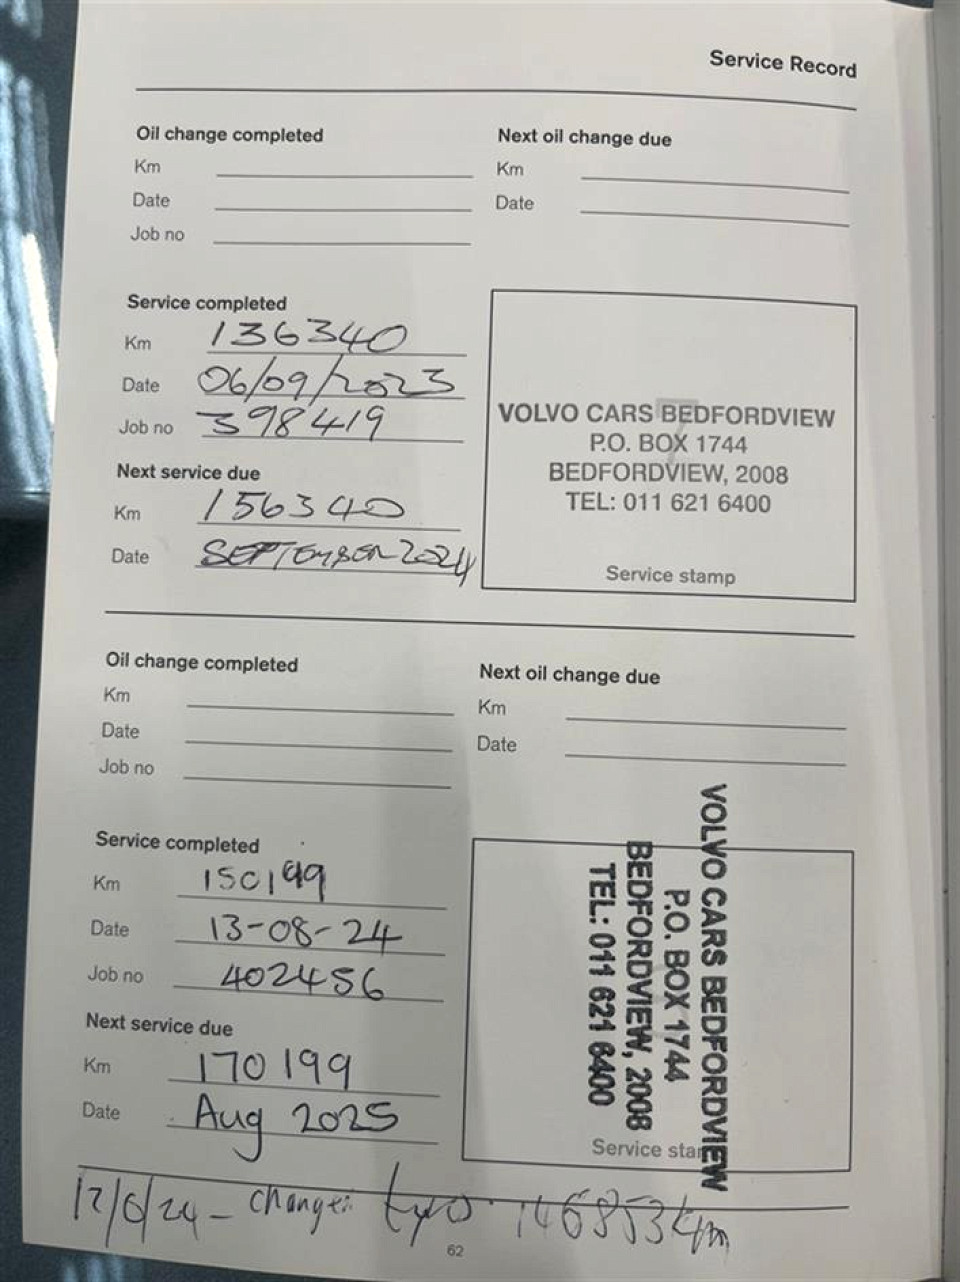 Service Record
Oil change completed
Km
Date
Job no
Next oil change due
Km
Date
Service completed
Km 136340
Date 06/09/2023
Job no 398419
Next service due
Km 156340
Date SEPTEMBER 2024
VOLVO CARS BEDFORDVIEW
P.O. BOX 1744
BEDFORDVIEW, 2008
TEL: 011 621 6400
Service stamp
Oil change completed
Km
Date
Job no
Next oil change due
Km
Date
Service completed
Km 150199
Date 13-08-24
Job no 402456
Next service due
Km 170199
Date Aug 2025
VOLVO CARS BEDFORDVIEW
P.O. BOX 1744
BEDFORDVIEW, 2008
TEL: 011 621 6400
Service stam
12/6/24 - 146853km
62